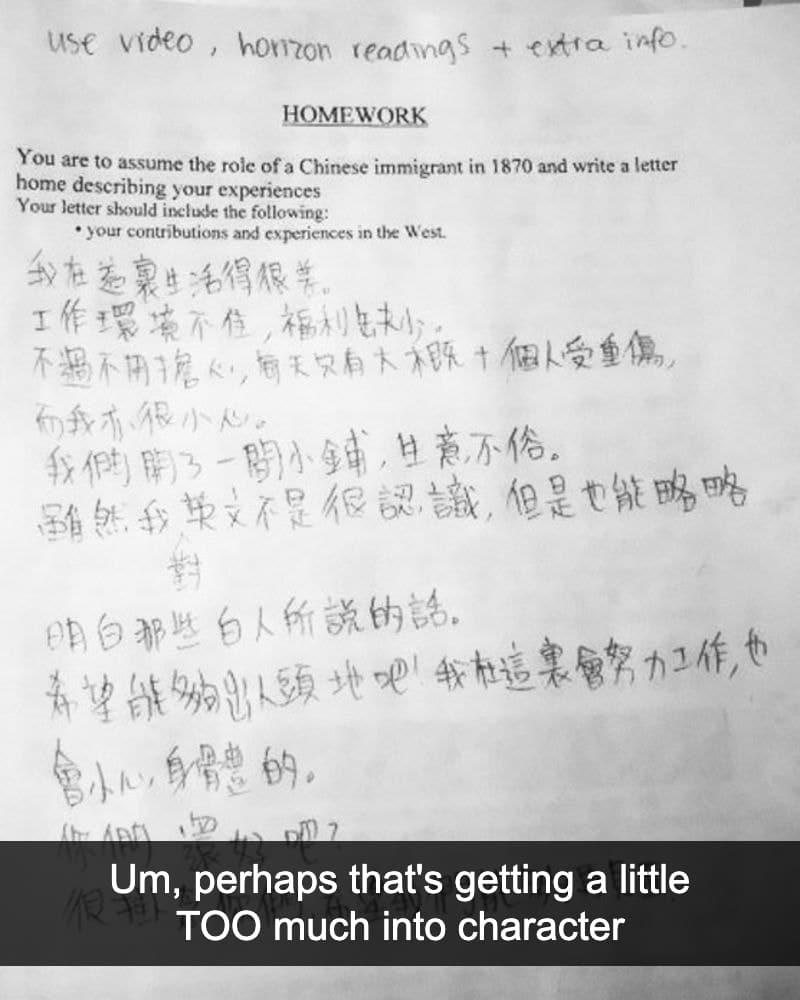 use video, horizon readings + extra info.
HOMEWORK
You are to assume the role of a Chinese immigrant in 1870 and write a letter
home describing your experiences
Your letter should include the following:
• your contributions and experiences in the West.
我在這裏生活得很差。
工作環境不佳，福利缺少。
不過不用擔心，每天只有大概十個人受重傷，
而我亦很小心。
我們開了一間小鋪，生意不俗。
雖然我英文不是很認識，但是也能略略
對
明白那些白人所說的話。
希望能夠出人頭地吧！我在這裏會努力工作，也
會小心身體的。
你們還好吧？
Um, perhaps that's getting a little
TOO much into character